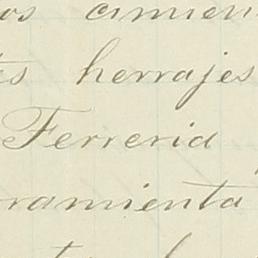 os cimien
es herrajes
Ferreria
ramienta